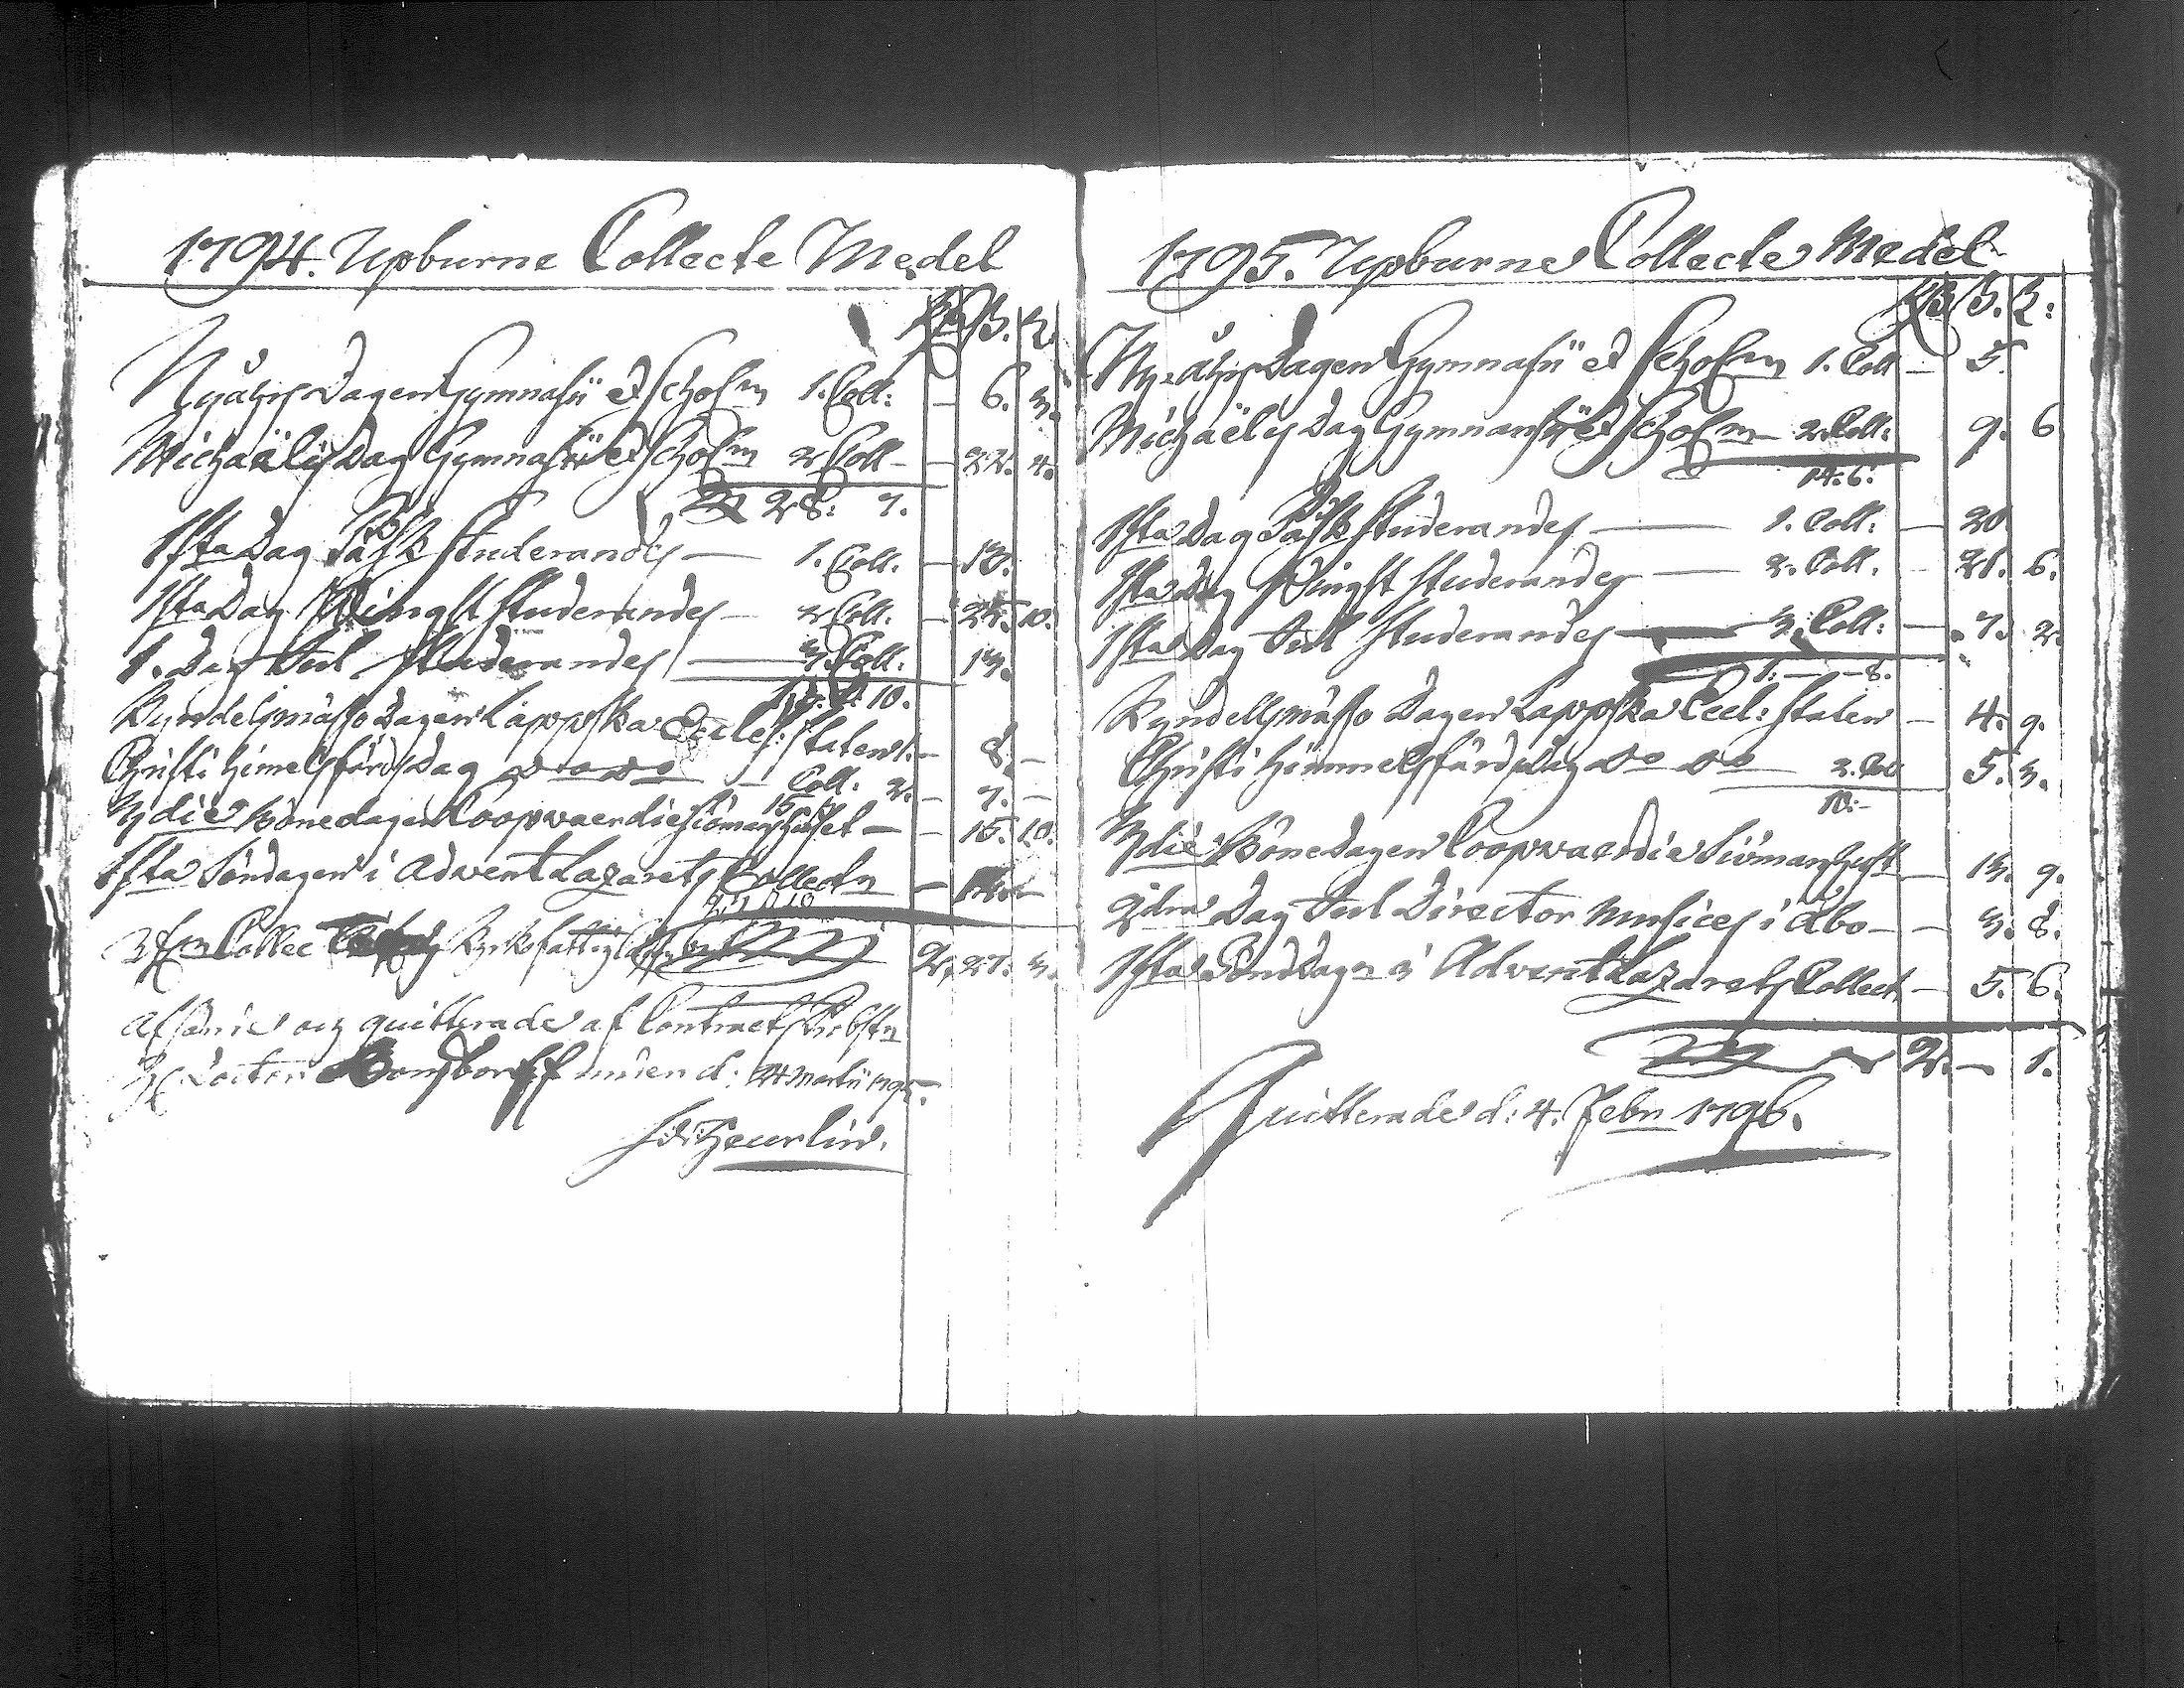 1794. Upburne Collecte Medel
Rd ß. rz.
Nyåhrs dagen Gymnasii et Scholen 1. Coll: — 6. 3.
Michaëlis dag Gymnasii et Scholen 2 Coll — 22. 4.
28: 7.
1sta dag Påsk Studerandes — 1. Coll. — 13.
1sta dag Pingst Studerandes — 2 Coll. — 10.
1. dag Jul Studerandes — 3. Coll. 13.
10.
Kyndelsmässo dagen Lappska Eccles: Staten 1. — 8. —
Christi Himelsfärds dag do do — Coll. 2. — 7. —
15
3die Bönedagen Coopvaerdie Siömans huset — 15. 10.
1sta Söndagen i Advent Lazarets Collecten —
Collec Kyrkofattig 2. 27. 3.
af Contracts Probsten
H Doctor Bonsdorff d. 24 Martii 1795.
Heurlin.
1795. Upburne Collecte Medel
Rd ß. rz:
Ny-åhrs dagen Gymnasii et Scholen 1. Coll — 5.
Michaëlis dag Gymnansii et Scholen 2. Coll: 9. 6
14: 6.
1sta dag Påsk Studerandes — 1. Coll: — 20
1sta dag Pingst Studerandes — 2. Coll. — 21. 6.
1sta dag Jul Studerandes — 3. Coll: — 7. 2.
1. — 8.
Kyndellsmässo dagen Lappska Eccl: Staten — 4. 9.
Christi Himmelsfärds dag do do 2. Coll 5. 3.
10: —
3die Bönedagen Coopvaerdie Siömanshuset — 13. 9.
2dra dag Jul Director Musices i Åbo — — 3. 8.
1sta Sönddagen i Advent Lazarets Collect. — 5. 6.
2. — 1.
Quitterade d: 4. Febr 1796.